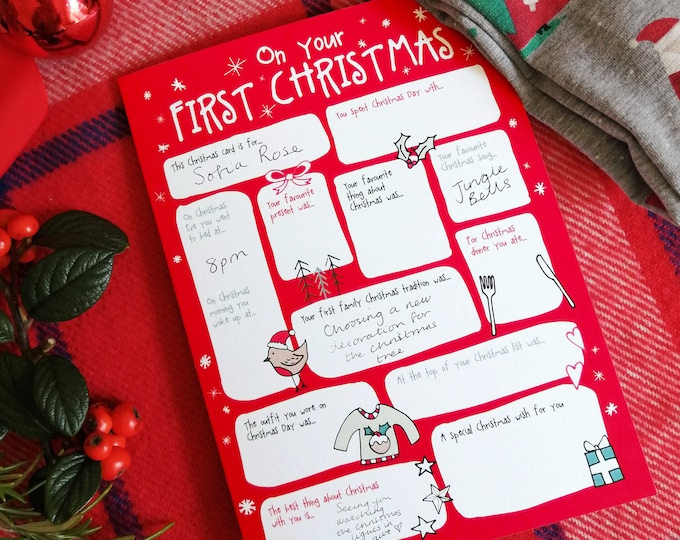 On Your
FIRST CHRISTMAS
This Christmas card is for...
Sofia Rose
You spent Christmas Day with...
On Christmas
Eve you went
to bed at...
8pm
On Christmas
morning you
woke up at...
Your favourite
present was...
Your favourite
thing about
Christmas was...
Your favourite
Christmas song...
Jingle
Bells
For Christmas
dinner you ate...
Your first family Christmas tradition was...
Choosing a new
decoration for
the Christmas
tree
At the top of your Christmas list was...
The outfit you wore on
Christmas Day was...
A special Christmas wish for you
The best thing about Christmas
with you is...
Seeing you
watching
the Christmas
lights in